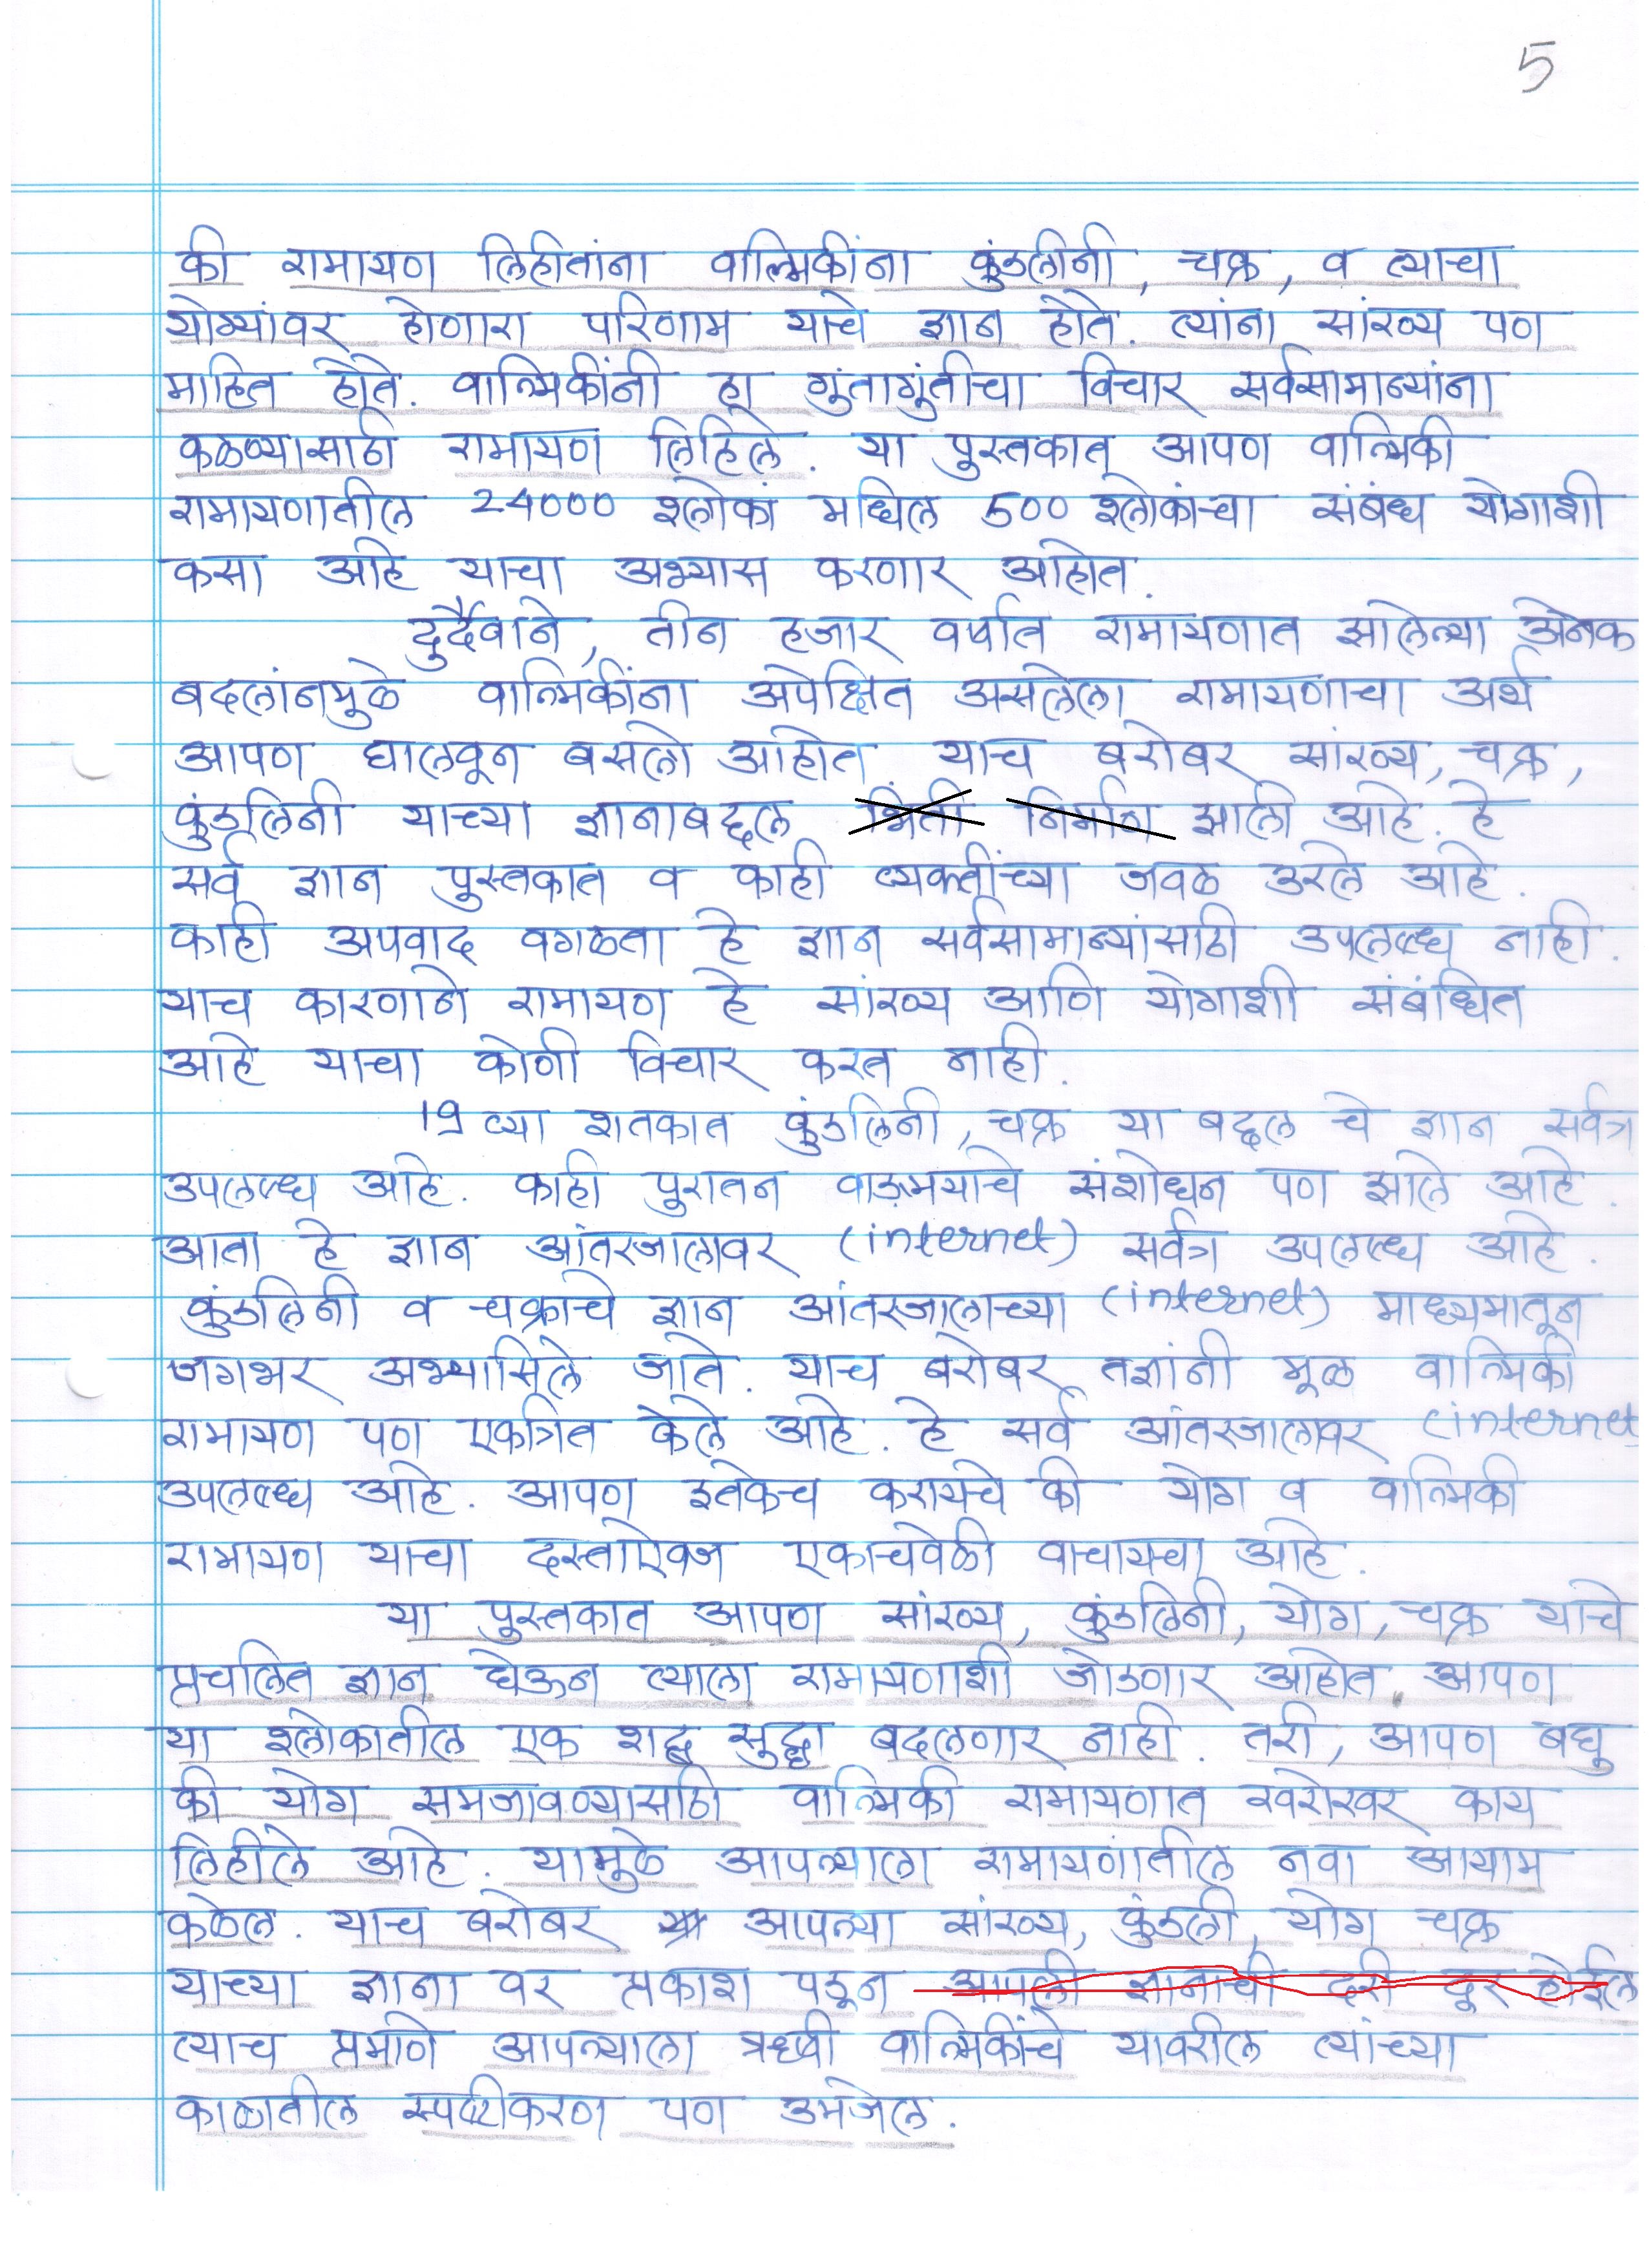 5
की रामायण लिहीतांना वाल्मिकींना कुंडलीनी, चक्र, व त्याचा
योग्यांवर होणारा परिणाम याचे ज्ञान होते. त्यांना सांख्य पण
माहित होते. वाल्मिकींनी हा गुंतागुंतीचा विचार सर्वसामान्यांना
कळण्यासाठी रामायण लिहिले. या पुस्तकात आपण वाल्मिकी
रामायणातील 24000 श्लोकां मधिल 500 श्लोकांचा संबंध योगाशी
कसा आहे याचा अभ्यास करणार आहोत.
दुर्दैवाने, तीन हजार वर्षात रामायणात झालेल्या अनेक
बदलांनमुळे वाल्मिकींना अपेक्षित असलेला रामायणाचा अर्थ
आपण घालवून बसलो आहोत. याच बरोबर सांख्य, चक्र,
कुंडलिनी याच्या ज्ञानाबद्दल भिती निर्माण झाली आहे. हे
सर्व ज्ञान पुस्तकात व काही व्यक्तींच्या जवळ उरले आहे.
काही अपवाद वगळता हे ज्ञान सर्वसामान्यांसाठी उपलब्ध नाही.
याच कारणाने रामायण हे सांख्य आणि योगाशी संबंधित
आहे याचा कोणी विचार करत नाही.
19 व्या शतकात कुंडलिनी, चक्र या बद्दल चे ज्ञान सर्वत्र
उपलब्ध आहे. काही पुरातन वाङमयाचे संशोधन पण झाले आहे.
आता हे ज्ञान आंतरजालावर (internet) सर्वत्र उपलब्ध आहे.
कुंडलिनी व चक्राचे ज्ञान आंतरजालाच्या (internet) माध्यमातून
जगभर अभ्यासिले जाते. याच बरोबर तज्ञांनी मूळ वाल्मिकी
रामायण पण एकत्रित केले आहे. हे सर्व आंतरजालावर (internet)
उपलब्ध आहे. आपण इतकेच करायचे की योग व वाल्मिकी
रामायण याचा दस्तऐवज एकाचवेळी वाचायचा आहे.
या पुस्तकात आपण सांख्य, कुंडलिनी, योग, चक्र याचे
प्रचलित ज्ञान घेऊन त्याला रामायणाशी जोडणार आहोत. आपण
या श्लोकातील एक शब्द सुद्धा बदलणार नाही. तरी, आपण बघु
की योग समजावण्यासाठी वाल्मिकी रामायणात खरोखर काय
लिहीले आहे. यामुळे आपल्याला रामायणातील नवा आयाम
कळेल. याच बरोबर आपल्या सांख्य, कुंडली, योग चक्र
याच्या ज्ञाना वर प्रकाश पडून आपली ज्ञानाची दरी दूर होईल
त्याच प्रमाणे आपल्याला ऋषी वाल्मिकींचे यावरील त्यांच्या
काळातील स्पष्टीकरण पण उमजेल.